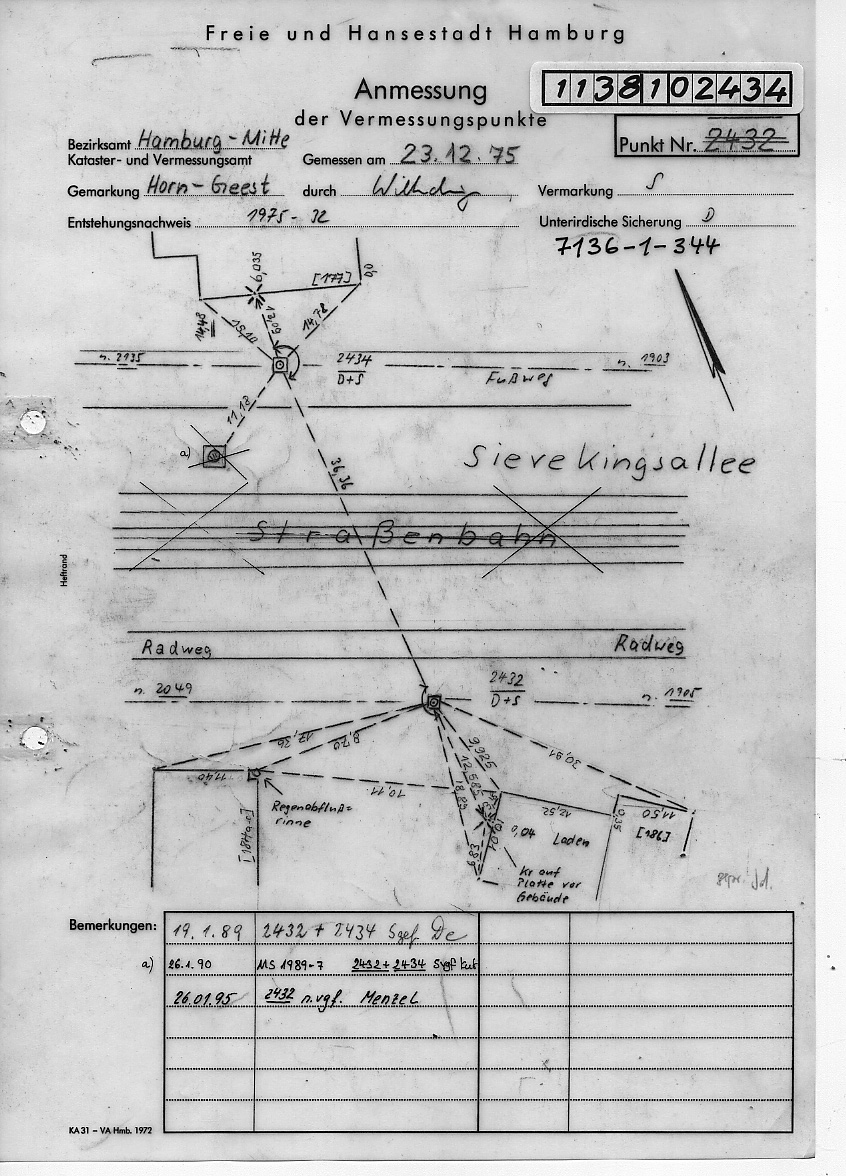 Freie und Hansestadt Hamburg
1138102434
Anmessung
der Vermessungspunkte
Punkt Nr. 2432
Bezirksamt Hamburg-Mitte
Kataster- und Vermessungsamt
Gemessen am 23.12.75
Gemarkung Horn-Geest
durch
Vermarkung S
Entstehungsnachweis 1975-32
Unterirdische Sicherung D
7136-1-344
6,035
[177]
0,0
14,43
19,10
12,09
14,78
n. 2135
2434
D+S
Fußweg
n. 1903
11,13
a)
Sievekingsallee
36,36
Straßenbahn
Heftrand
Radweg
Radweg
n. 2049
2432
D+S
n. 1905
17,36
8,70
9,925
12,585
18,85
30,91
11,40
10,11
12,52
0,35
11,50
[186]
Regenabfluß=
rinne
0,04
Laden
6,83
Kr auf
Platte vor
Gebäude
gepr.
Bemerkungen:
19.1.89 2432 + 2434 Sgef. De
a) 26.1.90 MS 1989-7 2432+2434 Svgf Kut
26.01.95 2432 n.vgf. Menzel
KA 31 – VA Hmb. 1972